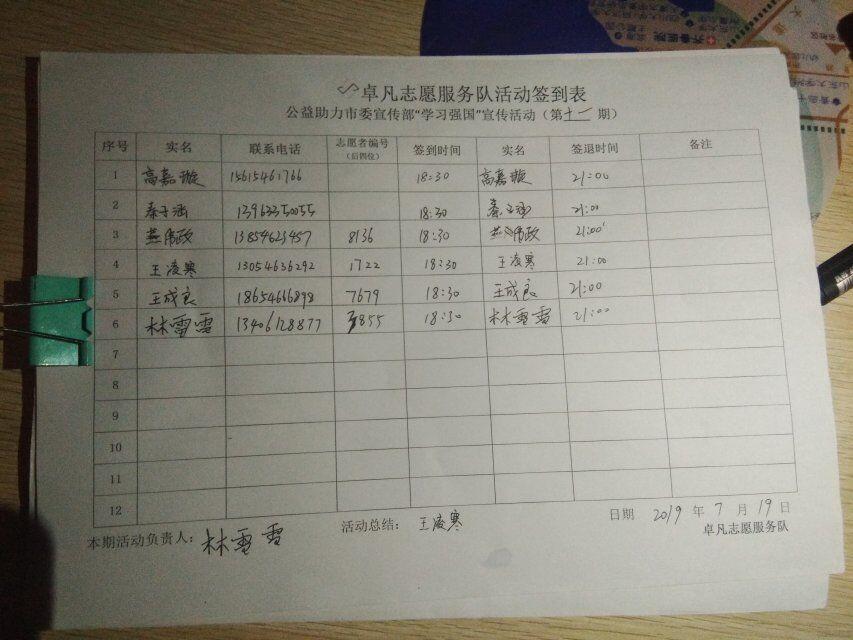 卓凡志愿服务队活动签到表
公益助力市委宣传部“学习强国”宣传活动（第十一期）
序号 实名 联系电话 志愿者编号（后四位） 签到时间 实名 签退时间 备注
1 高嘉璇 15615461766 18:30 高嘉璇 21:00
2 秦子涵 13963350055 18:30 秦子涵 21:00
3 燕伟政 13854623457 8136 18:30 燕伟政 21:00
4 王凌寒 13054636292 1722 18:30 王凌寒 21:00
5 王成良 18654616898 7679 18:30 王成良 21:00
6 林雪雪 13406128877 3855 18:30 林雪雪 21:00
7
8
9
10
11
12
本期活动负责人：林雪雪 活动总结：王凌寒 日期 2019年7月19日
卓凡志愿服务队
齐鲁医院